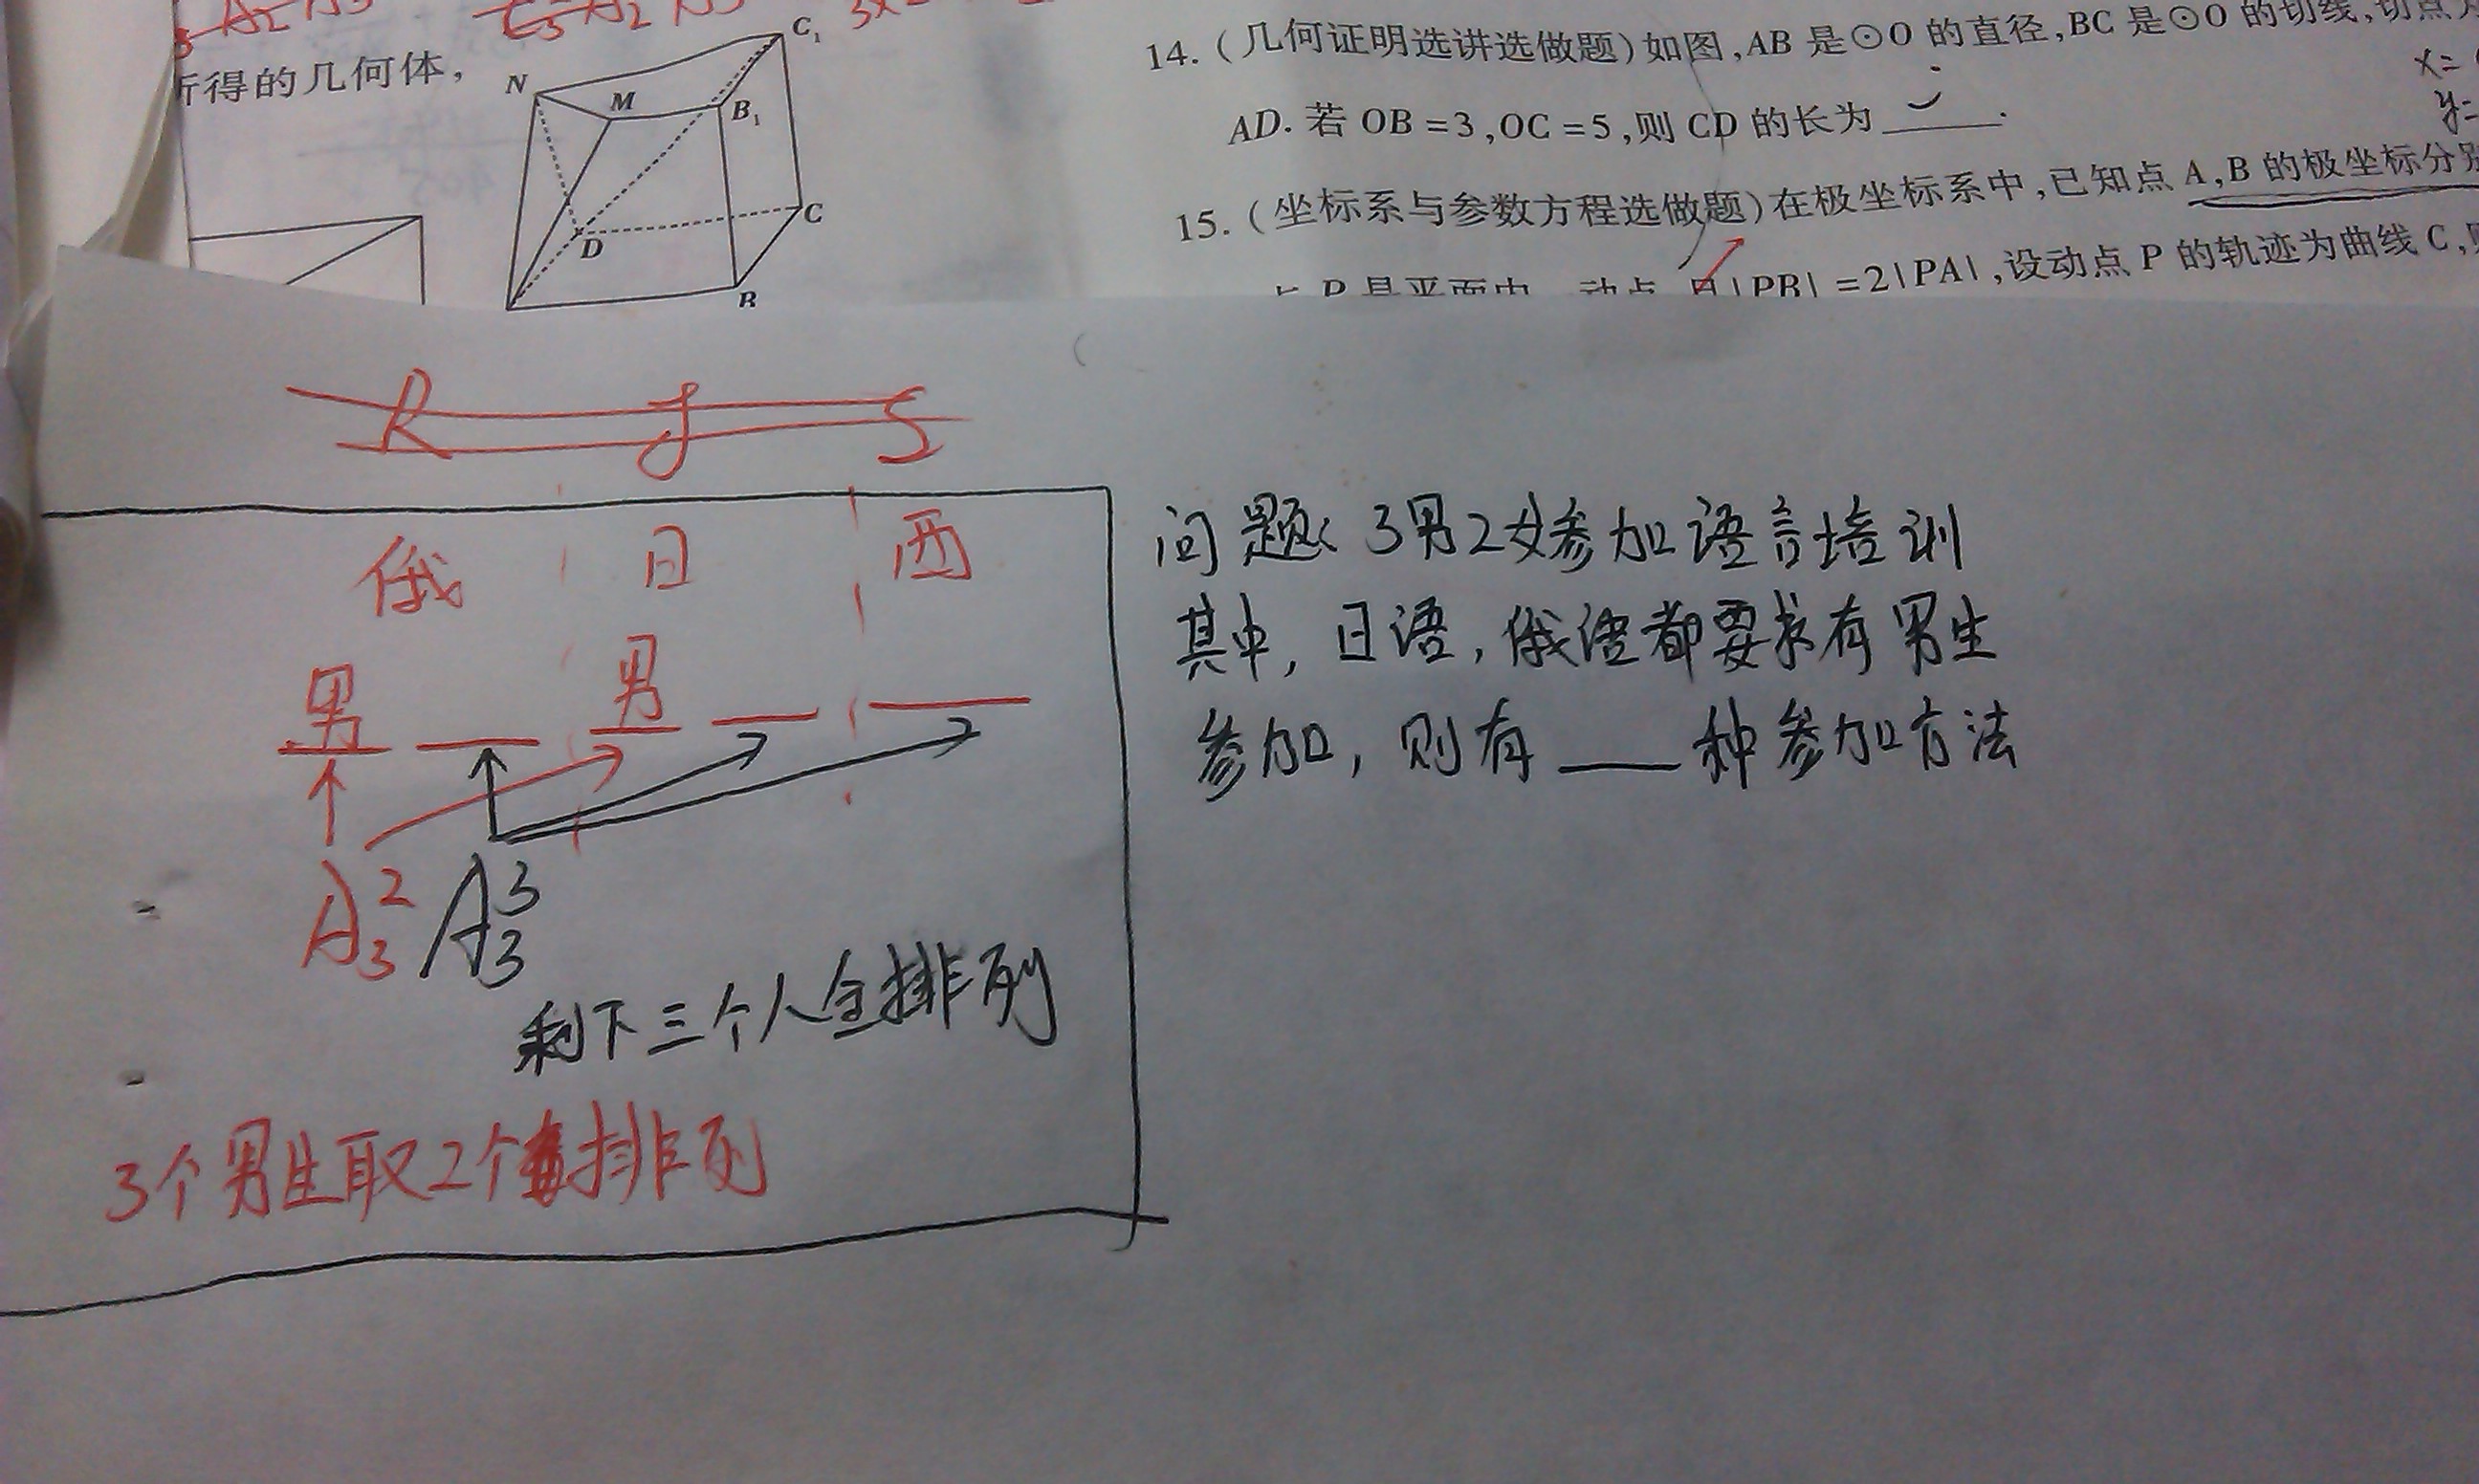 所得的几何体,
N
M
C₁
B₁
D
C
B
14.(几何证明选讲选做题)如图,AB 是⊙O 的直径,BC 是⊙O 的切线,切点为
AD. 若 OB =3,OC =5,则 CD 的长为
15.(坐标系与参数方程选做题)在极坐标系中,已知点 A,B 的极坐标分别
P 是平面内一动点,且|PB| =2|PA|,设动点 P 的轨迹为曲线 C,则
x=
y=
R J S
俄 日 西
男 男
A₃² A₃³
剩下三个人全排列
3个男生取2个排列
问题: 3男2女参加语言培训
其中, 日语, 俄语都要求有男生
参加, 则有 ___ 种参加方法